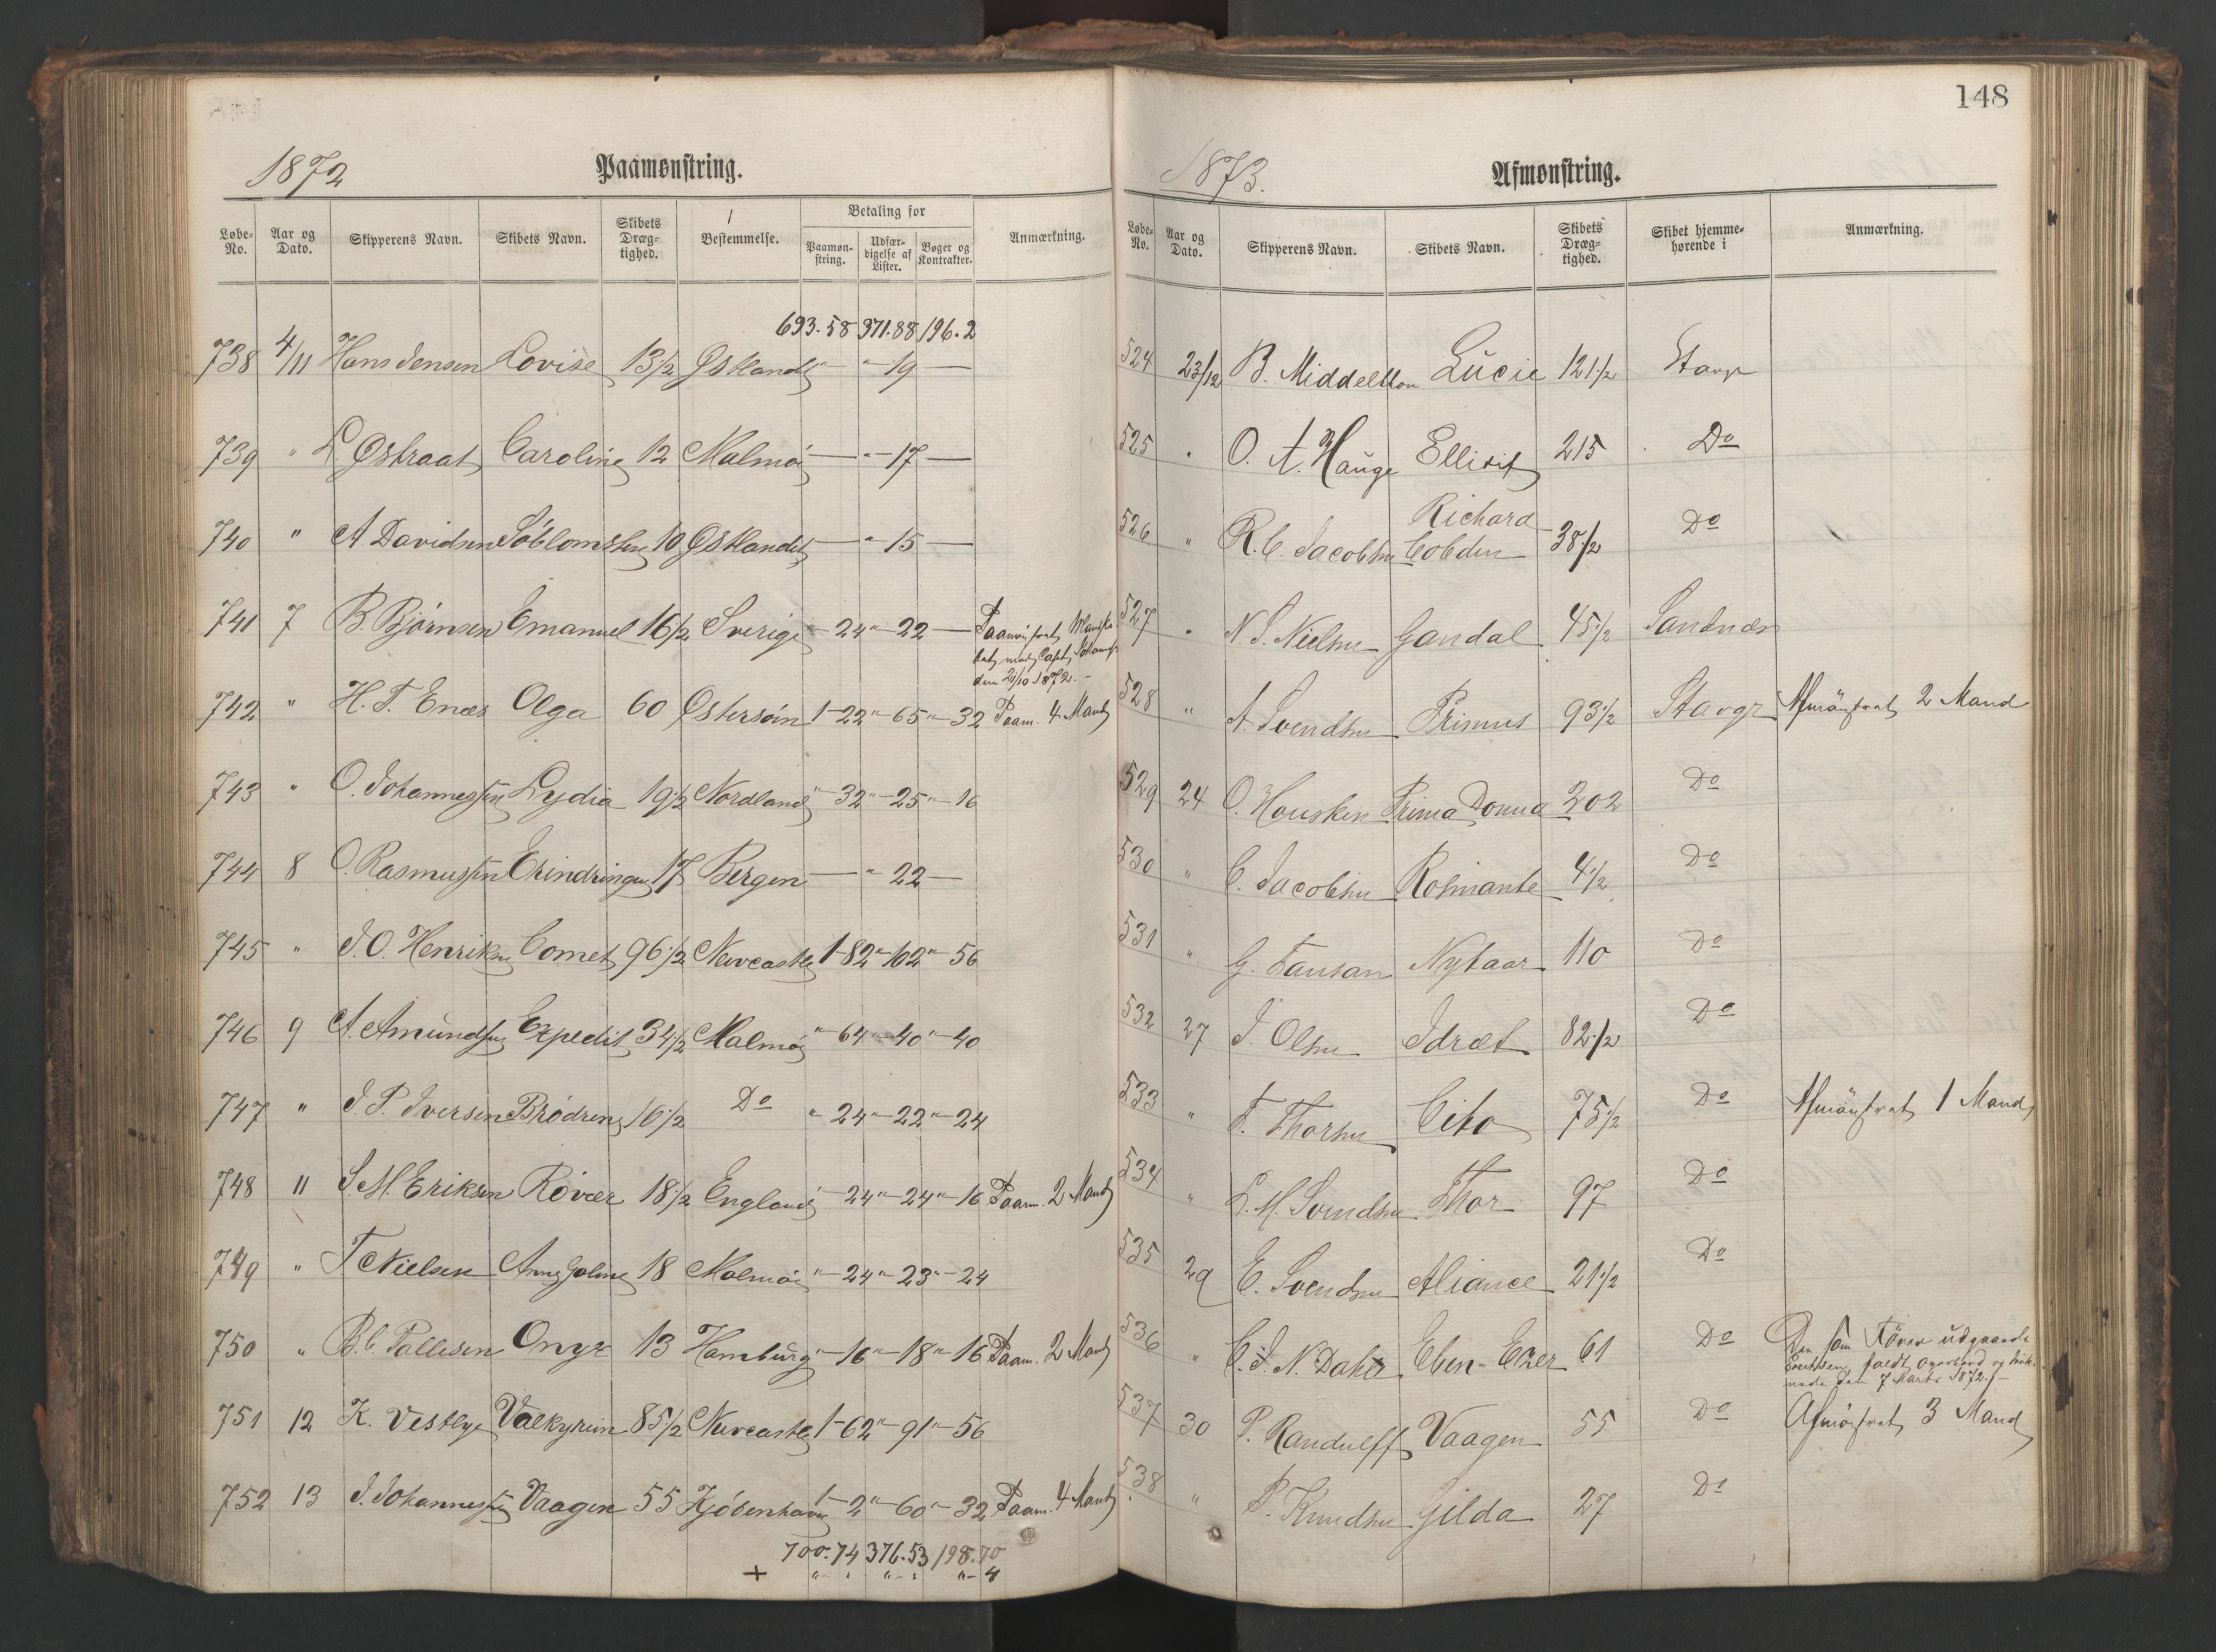 1872 Paamønstring.
Løbe-No. Aar og Dato. Skipperens Navn. Skibets Navn. Skibets Dræg-tighed. Bestemmelse. Betaling for Paamøn-string. Udfær-digelse af Lister. Bøger og Kontrakter. Anmærkning.
693.58 371.88 196.2
738 4/11 Hans Jensen Lovise 13 1/2 Østlandet — " 19 —
739 " L. Østraat Caroline 12 Malmøe — " 17 —
740 " A Davidsen Søblomsten 10 Østlandet — " 15 —
741 7 B. Bjørnsen Emanuel 16 1/2 Sverige " 24 " 22 — Paamønstret
den 26/10 1872.
742 " H. T. Enæs Olga 60 Østersøin 1-22 " 65 " 32 Paam. 4 Mand
743 " O. Johannessen Lydia 19 1/2 Nordland " 32 " 25 " 16
744 8 O. Rasmussen Erindringen 17 Bergen — " 22 —
745 " J. O. Henriksen Comet 96 1/2 Newcastle 1-82 " 102 " 56
746 9 A. Amundsen Expedit 34 1/2 Malmøe " 64 " 40 " 40
747 " J. P. Iversen Brødrene 16 1/2 Do " 24 " 22 " 24
748 11 S. M. Eriksen Røvær 18 1/2 England " 24 " 24 " 16 Paam. 2 Mand
749 " T Nielsen Anne Goline 18 Malmøe " 24 " 23 " 24
750 " B. C Pallesen Onyx 13 Hamburg " 16 " 18 " 16 Paam. 2 Mand
751 12 K. Vestbye Valkyrien 85 1/2 Newcastle 1-62 " 91 " 56
752 13 J. Johannessen Vaagen 55 Kjøbenhavn 1-2 " 60 " 32 Paam. 4 Mand
700.74 376.53 198.70
+ " - . " - . " - 4
148
1873. Afmønstring.
Løbe-No. Aar og Dato. Skipperens Navn. Skibets Navn. Skibets Dræg-tighed. Skibet hjemme-hørende i Anmærkning.
524 23/12 B. Middelthon Lucie 121 1/2 Stavgr
525 " O. A. Hauge Ellisif 215 Do
526 " R. C. Jacobsen Richard Cobden 38 1/2 Do
527 " N. S. Nielsen Gandal 45 1/2 Sandnæs
528 " A Svendsen Primus 93 1/2 Stavgr Afmønstret 2 Mand
529 24 O. Housken Prima Donna 202 Do
530 " C. Jacobsen Rosinante 4 1/2 Do
531 " G. Tausan Nytaar 110 Do
532 27 J. Olsen Idræt 82 1/2 Do
533 " T. Thorsen Cito 75 1/2 Do Afmønstret 1 Mand
534 " L. M. Svendsen Thor 97 Do
535 29 E. Svendsen Aliance 21 1/2 Do
536 " C. J. N. Dahl Eben-Ezer 61 Do Den som Fører udgaaede
faldt overbord og druk-
nede den 7 Marts 1872.
537 30 P. Randulff Vaagen 55 Do Afmønstret 3 Mand
538 " P. Knudsen Gilda 27 Do